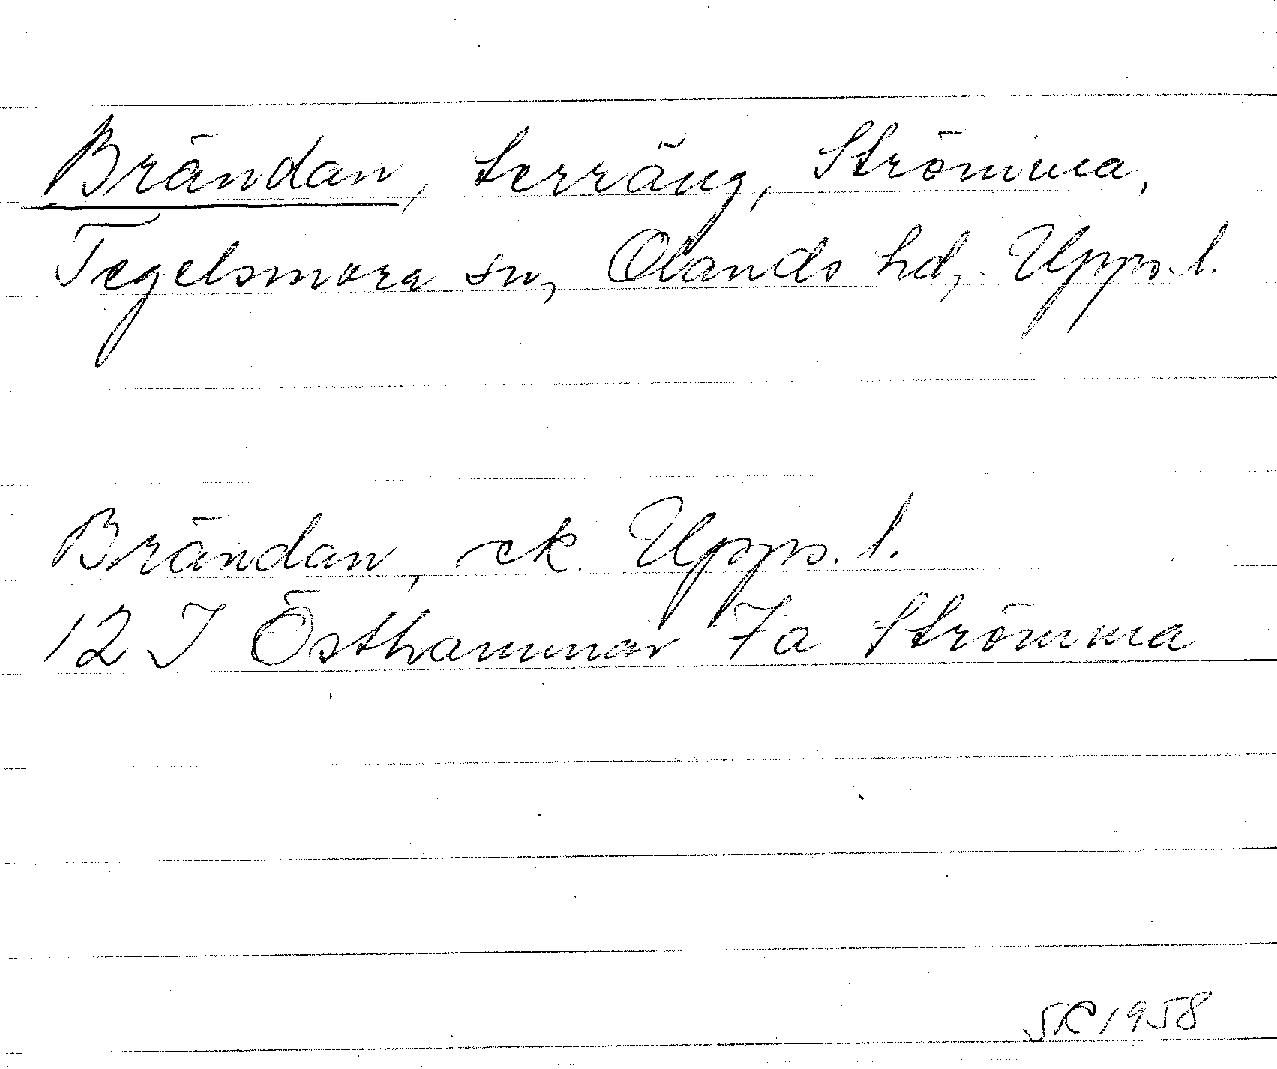 Brändan, terräng, Strömma,
Tegelsmora sn, Olands hd, Upps. l.
Brändan, ek. Upps. l.
12 I Östhammar 7a Strömma
SK 1958